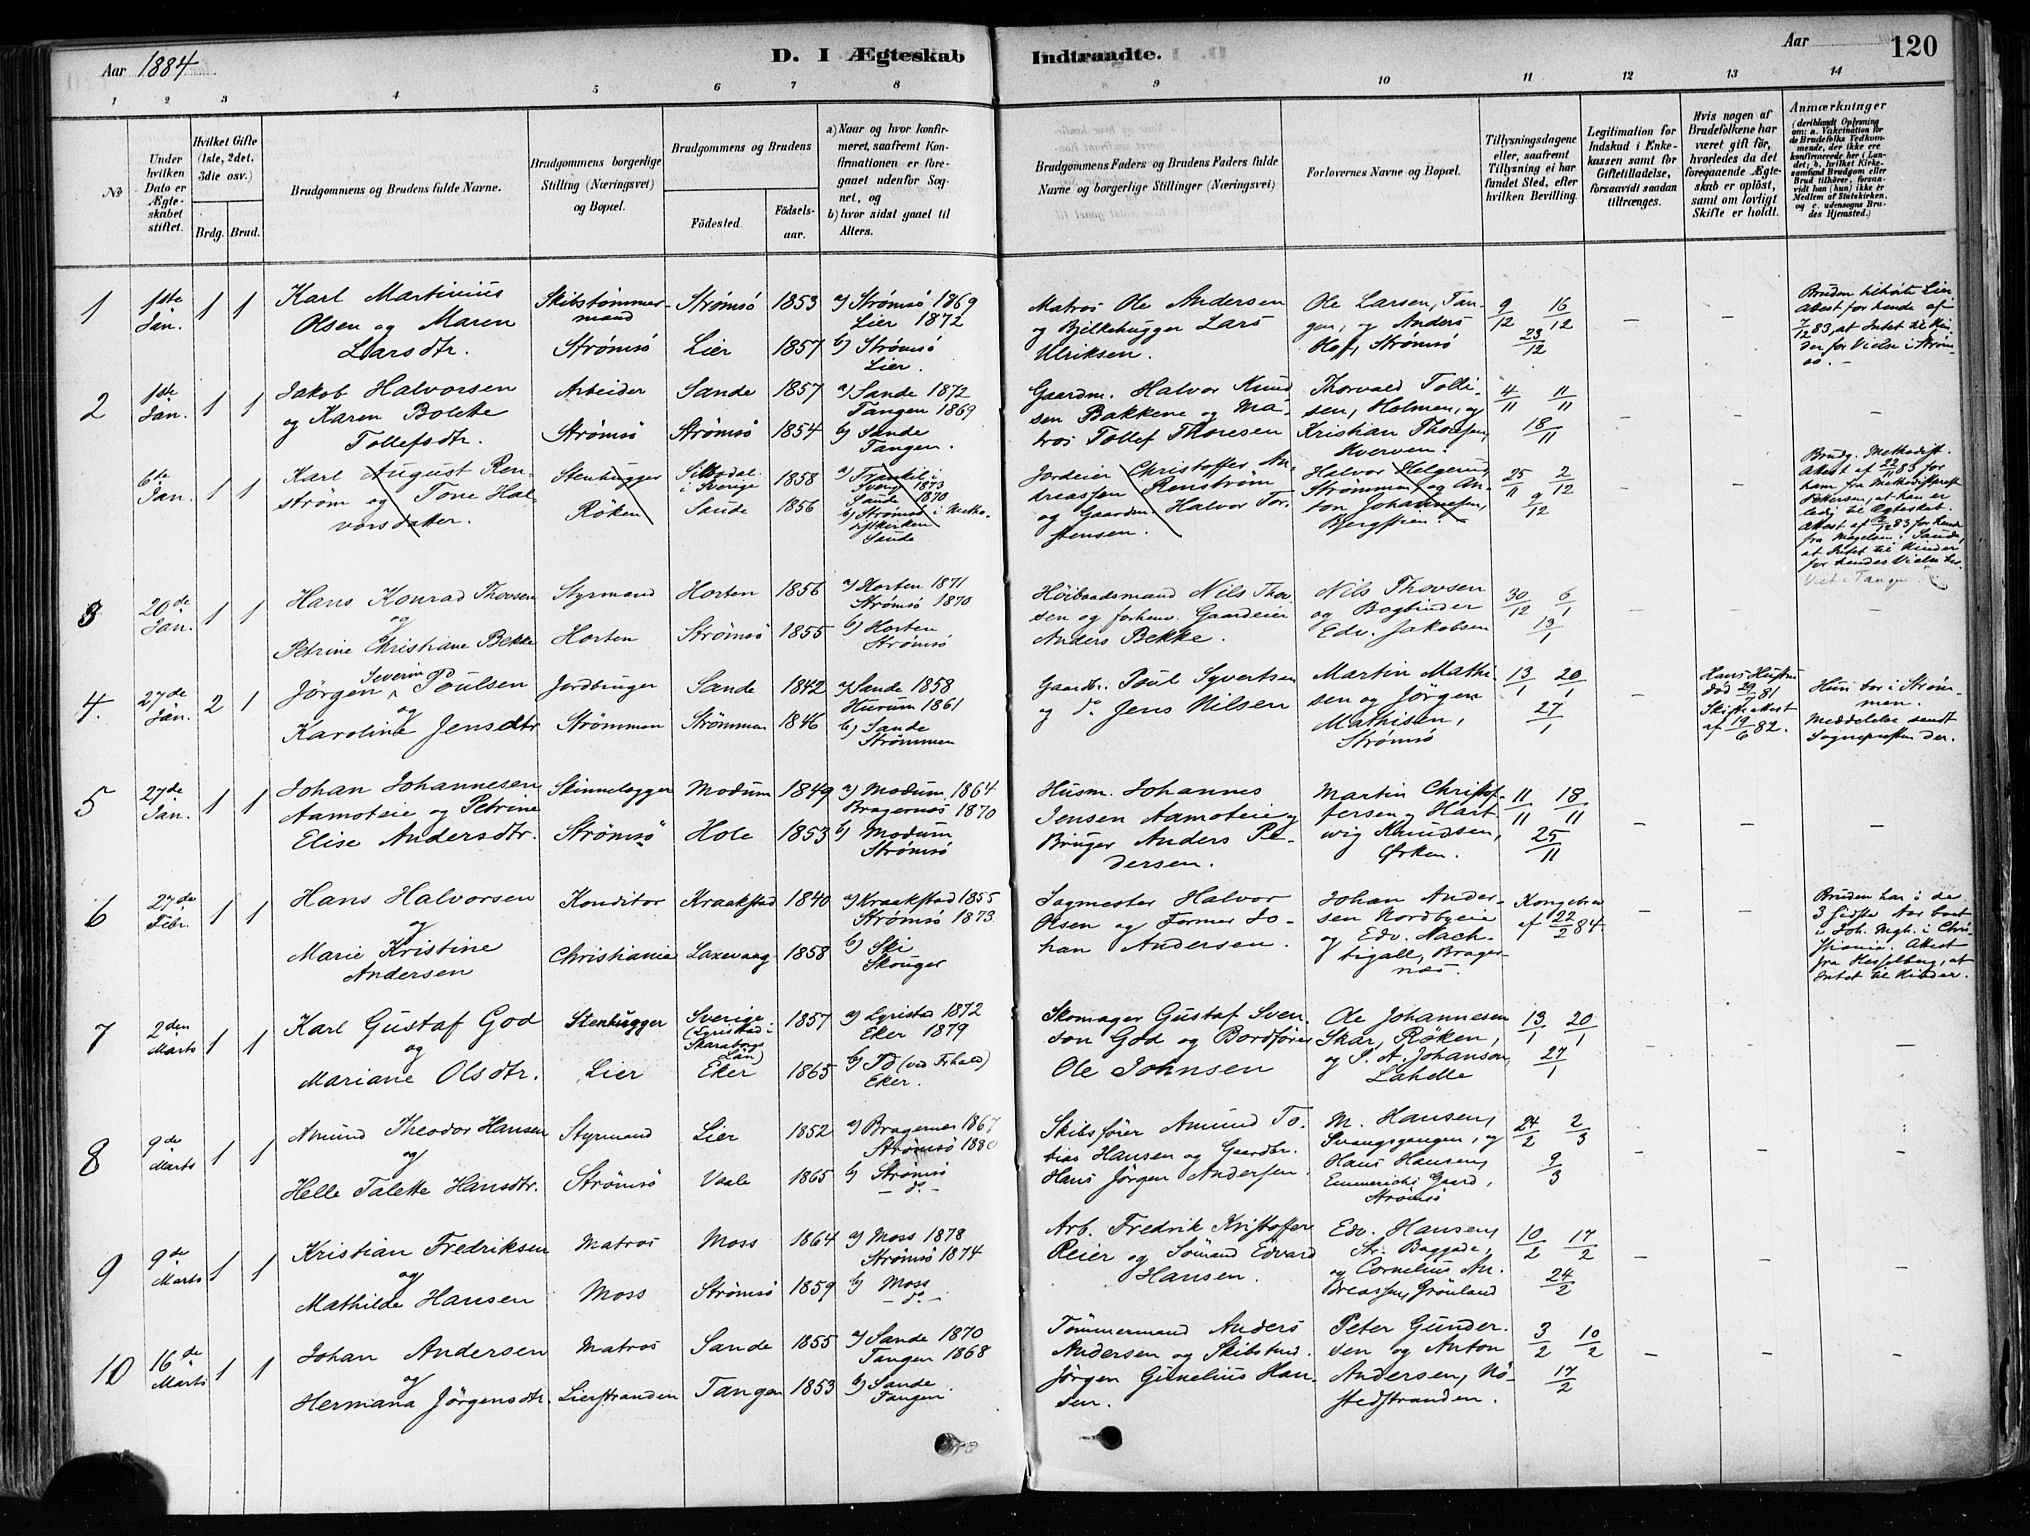 Aar 1884
D. I Ægteskab
Indtraadte.
Aar
120
1 2 3 4 5 6 7 8 8 9 10 11 12 13 14
No
Under hvilken Dato er Ægteskabet stiftet.
Hvilket Gifte (1ste, 2det, 3die osv.)
Brdg. Brud.
Brudgommens og Brudens fulde Navne.
Brudgommens borgerlige Stilling (Næringsvei) og Bopæl.
Brudgommens og Brudens
Födested.
Födselsaar.
a) Naar og hvor konfirmeret, saafremt Konfirmationen er foregaaet udenfor Sognet, og
b) hvor sidst gaaet til Alters.
Brudgommens Faders og Brudens Faders fulde Navne og borgerlige Stillinger (Næringsvei)
Forlovernes Navne og Bopæl.
Tillysningsdagene eller, saafremt Tillysning ei har fundet Sted, efter hvilken Bevilling.
Legitimation for Indskud i Enkekassen samt for Giftetilladelse, forsaavidt saadan tiltrænges.
Hvis nogen af Brudefolkene har været gift för, hvorledes da det foregaaende Ægteskab er oplöst, samt om lovligt Skifte er holdt.
Anmærkninger
(deriblandt Oplysning om: a. Vakcination for de Brudefolks Vedkommende, der ikke ere konfirmerede her i Landet; b. hvilket Kirkesamfund Brudgom eller Brud tilhörer, forsaavidt han (hun) ikke er Medlem af Statskirken, og c. udensogns Brudes Hjemsted.)
1 1ste Jan. 1 1
Karl Martinius
Olsen og Maren
Larsdtr.
Skibstømmermand
Strömsö
Strömsö 1853
Lier 1857
a) Strömsö 1869
Lier 1872
b) Strömsö
Lier.
Matros Ole Andersen
og Bjelkehugger Lars
Ulriksen.
Ole Larsen, Tangen, og Anders
Hof, Strömsö
9/12 16/12
23/12
Bruden tilhörte Lier
Attest for hende af
7/12 83, at Intet til Hinder for Vielse i Strömsö. –
2 1ste Jan. 1 1
Jakob Halvorsen
og Karen Bolette
Tollefsdtr.
Arbeider
Strömsö
Sande 1857
Strömsö 1854
a) Sande 1872
Tangen 1869
b) Sande
Tangen.
Gaardm. Halvor Knudsen Bakkene og Matros Tollef Thoresen
Thorvald Tollisen, Holmen, og
Kristian Thoresen,
Hverven.
4/11 11/11
18/11
6te Jan. 1 1
Karl August Renström og Tone Halvorsdatter.
Stenhugger
Röken
i Sverige 1858
Sande 1856
Sverig 1873
Sande 1870
b) Strömsö i Methodistkirken
Sande
Jordeier Christoffer Andreassen Renström
og Gaardm. Halvor Torstensen.
Halvor Helgerud
Strömmen, og Anton Johannesen,
Bergstien.
25/11 2/12
9/12
Brudg. Methodist.
Attest af 22/11 83 for
ham fra Methodistprest
Petersen, at han er
ledig til Ægteskab.
Attest af 9/12 83 for hende
fra Magelsen i Sande,
at Intet til Hinder
for hendes Vielse her.
Viet i Tangen
3 20de Jan. 1 1
Hans Konrad Thovsen
og
Petrine Christiane Bekke
Styrmand
Horten
Horten 1856
Strömsö 1855
a) Horten 1871
Strömsö 1870
b) Horten
Strömsö
Höibaadsmand Nils Thovsen og forhenv. Gaardeier
Anders Bekke.
Nils Thovsen
og Bogbinder
Edv. Jakobsen
30/12 6/1
13/1
4. 27de Jan. 2 1
Jörgen Severin Poulsen
og
Karoline Jensdtr
Jordbruger
Strömmen
Sande 1842
Strömmen 1846
a) Sande 1858
Hurum 1861
b) Sande
Strömmen
Gaardbr. Poul Syvertsen
og do Jens Nilsen
Martin Mathisen og Jörgen
Mathisen,
Strömsö
13/1 20/1
27/1
Hans Hustru
död 29/7 81
Skifteattest
af 19/6 82.
Hun bor i Strömmen.
Meddelelse sendt
Sognepresten der.
5 27de Jan. 1 1
Johan Johannesen
Aamoteie og Petrine
Elise Andersdtr.
Skinnelægger
Strömsö
Modum 1849
Hole 1853
a) Modum 1864
Bragernæs 1870
b) Modum
Strömsö
Husm. Johannes
Jensen Aamoteie og
Bruger Anders Pedersen.
Martin Christoffersen og Hartvig Knudsen,
Örken.
11/11 18/11
25/11
6 27de Febr. 1 1
Hans Halvorsen
og
Marie Kristine
Andersen
Konditor
Christiania
Kraakstad 1840
Laxevaag 1858
a) Kraakstad 1855
Strömsö 1873
b) Ski
Skouger
Sagmester Halvor
Olsen og Former Johan Andersen.
Johan Andersen Nordbyeie
og Edv. Nachtigall, Bragernæs.
Kongebrev
af 22/2 84
Bruden har i de
3 sidste Aar boet
i Joh. Mgh. i Christiania. Attest
fra Hesselberg, at
Intet til Hinder.
7 2den Marts 1 1
Karl Gustaf God
og
Mariane Olsdtr.
Stenhugger
Lier
Sverige
(Lyrestad i
Skaraborgs
Län) 1857
Eker 1865
a) Lyrestad 1872
Eker 1879
Eker.
Skomager Gustaf Svenson God og Bordförer
Ole Johnsen
Ole Johannesen
Skar, Röken,
og P. A. Johanson,
Lahelle
13/1 20/1
27/1
8 9de Marts 1 1
Amund Theodor Hansen
og
Helle Talette Hansdtr.
Styrmand
Strömsö
Lier 1852
Vaale 1865
a) Bragernes 1867
Strömsö 1880
b) Strömsö
– do –
Skibsförer Amund Tobias Hansen og Gaardbr.
Hans Jörgen Andersen
M. Hansen,
Svangsgangen, og
Hans Hansen,
Emmerichs Gaard,
Strömsö
24/2 2/3
9/3
9 9de Marts 1 1
Kristian Fredriksen
og
Mathilde Hansen
Matros
Moss
Moss 1864
Strömsö 1859
a) Moss 1878
Strömsö 1874
b) Moss
– do –
Arb. Fredrik Kristoffer
Reier og Sömand Edvard
Hansen.
Edv. Hansen,
Str. Baggade,
og Cornelius Andreassen, Grönland
10/2 17/2
24/2
10 16de Marts 1 1
Johan Andersen
og
Hermana Jörgensdtr.
Matros
Lierstranden
Sande 1855
Tangen 1853
a) Sande 1870
Tangen 1868
b) Sande
Tangen
Tömmermand Anders
Andersen og Skibstmd.
Jörgen Gunelius Hansen.
Peter Gundersen og Anton
Andersen, Nöstedstranden.
3/2 10/2
17/2